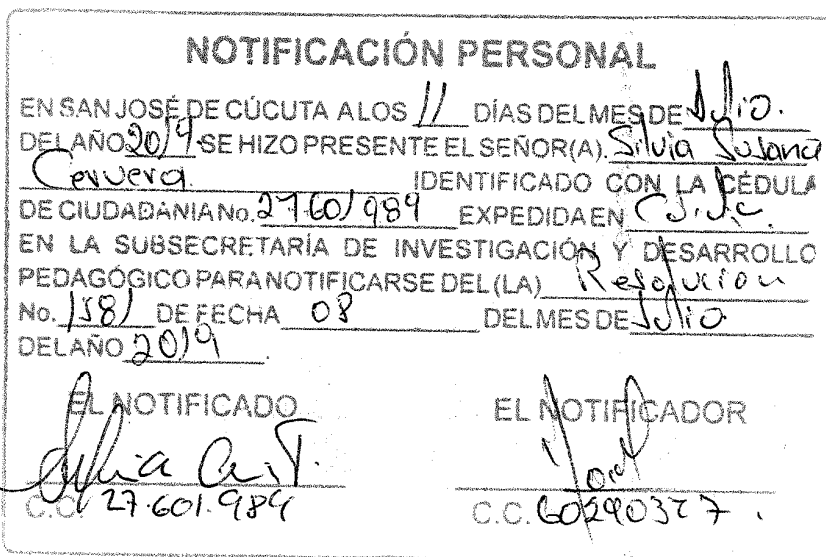 NOTIFICACIÓN PERSONAL
EN SAN JOSÉ DE CÚCUTA A LOS 11 DÍAS DEL MES DE Julio.
DEL AÑO 2019 SE HIZO PRESENTE EL SEÑOR(A). Silvia Susana
Cervera IDENTIFICADO CON LA CÉDULA
DE CIUDADANIA No. 27601989 EXPEDIDA EN
EN LA SUBSECRETARÍA DE INVESTIGACIÓN Y DESARROLLO
PEDAGÓGICO PARA NOTIFICARSE DEL (LA) Resolucion
No. 1581 DE FECHA 08 DEL MES DE Julio
DEL AÑO 2019
EL NOTIFICADO EL NOTIFICADOR
C.C. 27.601.989 C.C. 60290327.